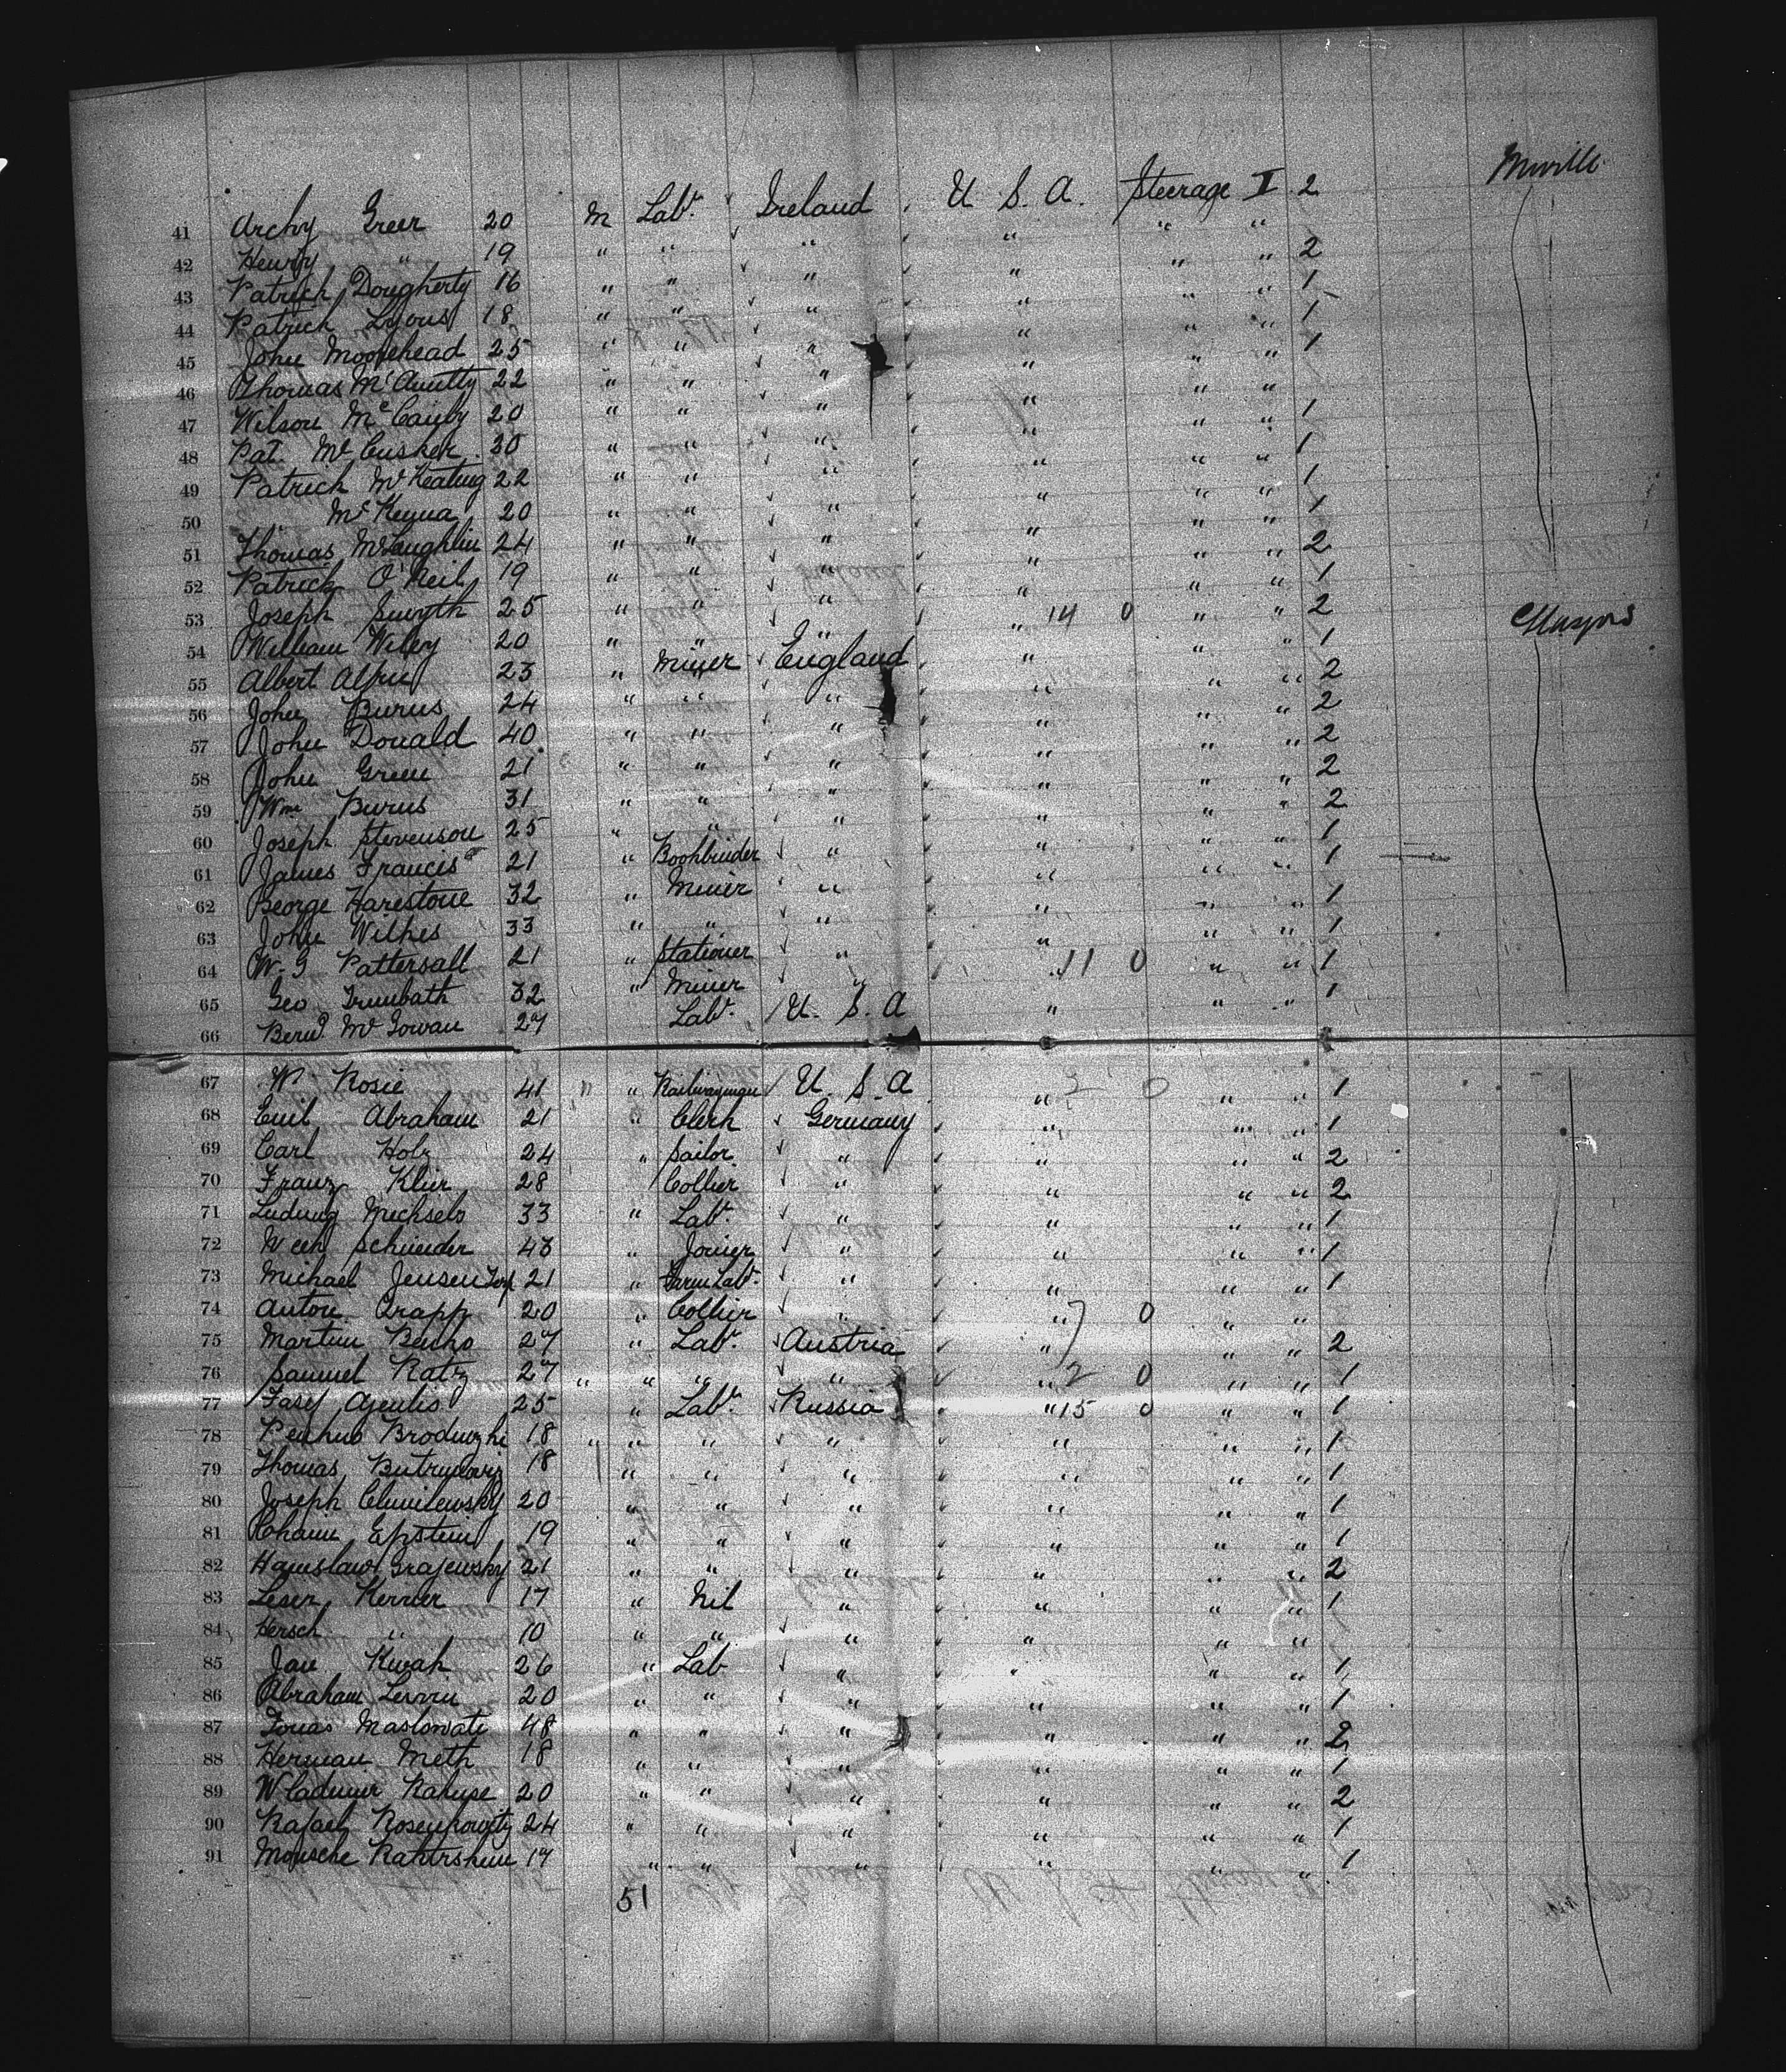 Moville
41 Archy Greer 20 M Labr. Ireland U. S. A. Steerage I 2
42 Henry " 19 " " " " " " 2
43 Patrick Dougherty 16 " " " " " " 1
44 Patrick Lyons 18 " " " " " " 1
45 John Moorehead 25 " " " " " " 1
46 Thomas 22 " " " " " "
47 Wilson 20 " " " " " " 1
48 Pat. McCusker 30 " " " " " " 1
49 Patrick McKeating 22 " " " " " " 1
50 McKenna 20 " " " " " " 1
51 Thomas McLaughlin 24 " " " " " " 2
52 Patrick O'Neil 19 " " " " " " 1
53 Joseph Smyth 25 " " " " 14 0 " " 2
Glasgow
54 William Wiley 20 " " " " " " 1
55 Albert 23 " Miner England " " " 2
56 John Burns 24 " " " " " " 2
57 John Donald 40 " " " " " " 2
58 John Green 21 " " " " " " 2
59 Wm. Burns 31 " " " " " " 2
60 Joseph Stevenson 25 " " " " " " 1
61 James Francis 21 " Bookbinder " " " " 1
62 George Harestone 32 " Miner " " " " 1
63 John Wilkes 33 " " " " " " 1
64 W. G Pattersall 21 " Stationer " " 11 0 " " 1
65 Geo Trembath 32 " Miner " " " " 1
66 Bernd. McGowan 27 Labr. U. S. A
67 W. Rosie 41 " " Railwayman U. S. A " 2 0 " " 1
68 Emil Abraham 21 " Clerk Germany " " " 1
69 Carl Holz 24 " Sailor " " " " 2
70 Franz Klier 28 Collier " " " " 2
71 Ludwig 33 " Labr. " " " " 1
72 Schneider 43 " Joiner " " " " 1
73 Michael Jensen 21 " Farm Labr. " " " " 1
74 Anton 20 " Collier " " 7 0 " "
75 Martin 27 " Labr. Austria " " " 2
76 Samuel Katz 27 " " " " " 2 0 " " 1
77 25 " Labr. Russia " 15 0 " " 1
78 18 " " " " " " " 1
79 Thomas 18 " " " " " " 1
80 Joseph 20 " " " " " " 1
81 Chaim Epstein 19 " " " " " " 1
82 Grajewsky 21 " " " " " " 2
83 Leser 17 " Nil " " " " 1
84 Hersch " 10 " " " " " "
85 Jan Kwak 26 " Lab " " " 1
86 Abraham 20 " " " " " 1
87 48 " " " " " 2
88 Herman Meth 18 " " " " " " 1
89 Wladimir 20 " " " " " " 2
90 Rafael 24 " " " " " " 1
91 17 " " " " " 1
51